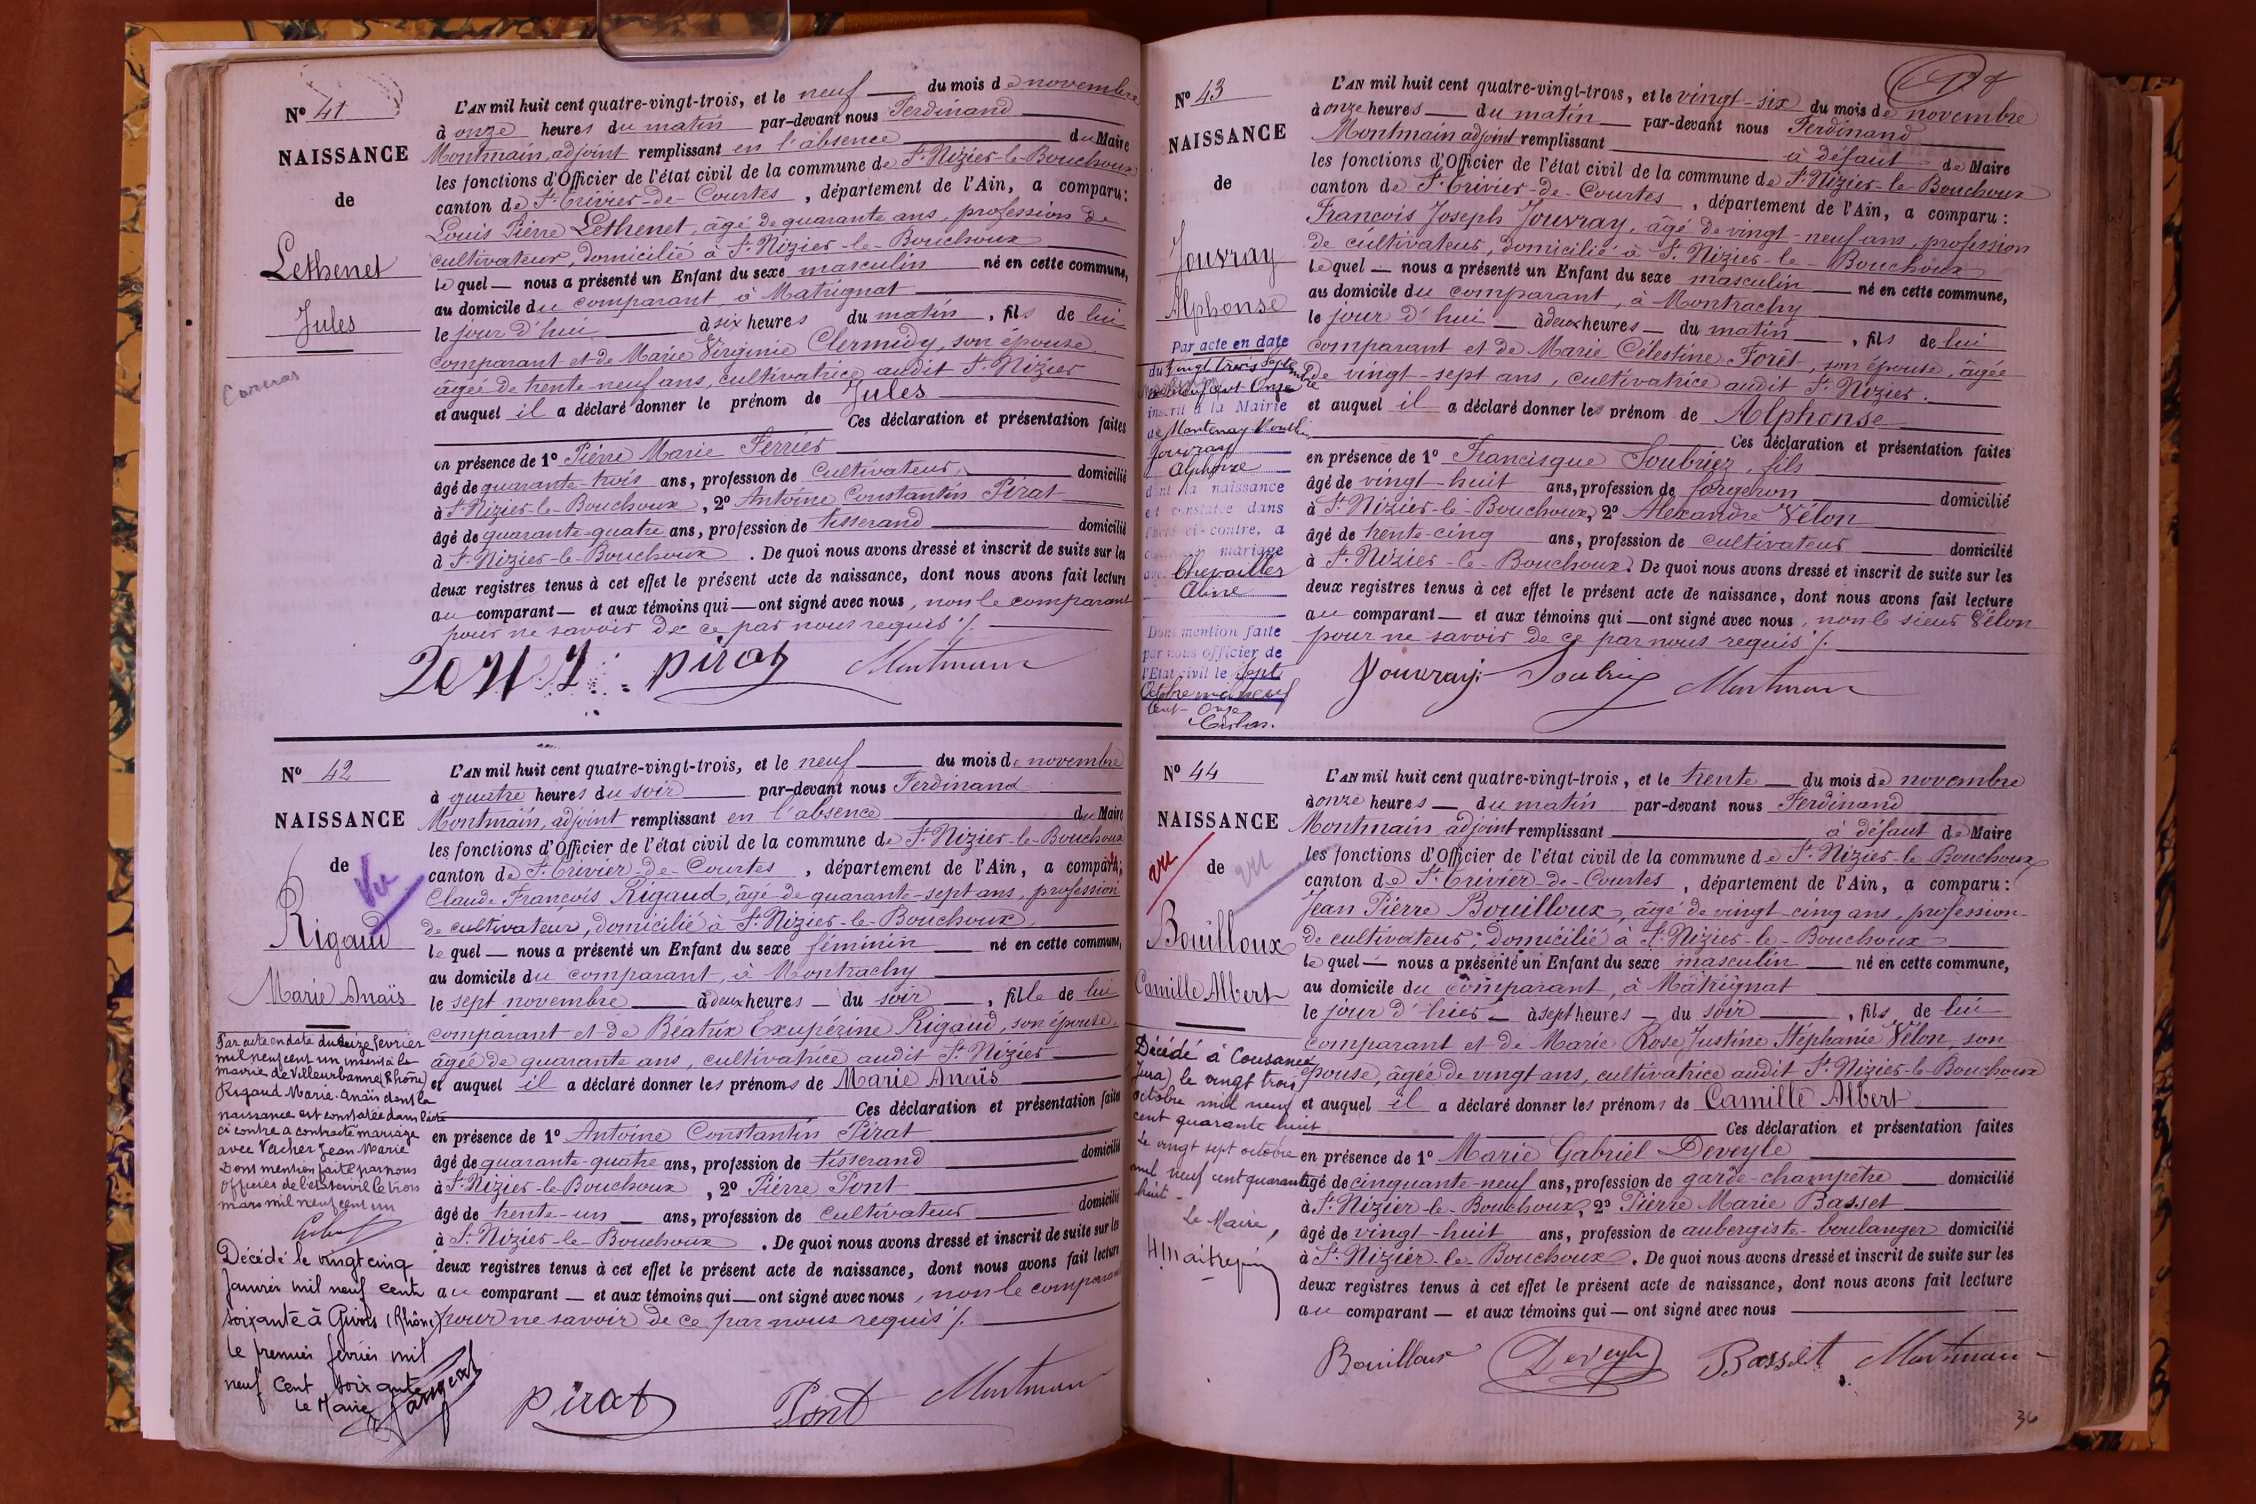 N° 41
NAISSANCE
de
Lethenet
Jules
L'AN mil huit cent quatre-vingt-trois, et le neuf du mois de novembre
à onze heures du matin par-devant nous Ferdinand
Montmain, adjoint remplissant en l'absence du Maire
les fonctions d'Officier de l'état civil de la commune de St Nizier-le-Bouchoux
canton de St Trivier-de-Courtes, département de l'Ain, a comparu:
Louis Pierre Lethenet, âgé de quarante ans, profession de
cultivateur, domicilié à St Nizier-le-Bouchoux
lequel — nous a présenté un Enfant du sexe masculin né en cette commune,
au domicile du comparant à Matrignat
le jour d'hui à six heures du matin, fils de lui
comparant et de Marie Virginie Clermidy, son épouse
âgée de trente-neuf ans, cultivatrice audit St Nizier
et auquel il a déclaré donner le prénom de Jules
Ces déclaration et présentation faites
en présence de 1° Pierre Marie Ferrier
âgé de quarante-trois ans, profession de cultivateur, domicilié
à St Nizier-le-Bouchoux, 2° Antoine Constantin Pirat
âgé de quarante-quatre ans, profession de tisserand domicilié
à St Nizier-le-Bouchoux. De quoi nous avons dressé et inscrit de suite sur les
deux registres tenus à cet effet le présent acte de naissance, dont nous avons fait lecture
au comparant — et aux témoins qui — ont signé avec nous, non le comparant
pour ne savoir de ce par nous requis ./.
pirat Montmain
N° 42
NAISSANCE
de
Vu
Rigaud
Marie Anaïs
Par acte en date du seize février
mil neuf cent un inscrit à la
mairie de Villeurbanne (Rhône)
Rigaud Marie-Anaïs dont la
naissance est constatée dans l'acte
ci contre a contracté mariage
avec Vacher Jean-Marie
Dont mention faite par nous
Officier de l'état civil le trois
mars mil neuf cent un
Décédé le vingt cinq
Janvier mil neuf cent
soixante à Givors (Rhône)
le premier février mil
neuf cent soixante
Le Maire
L'AN mil huit cent quatre-vingt-trois, et le neuf du mois de novembre
à quatre heures du soir par-devant nous Ferdinand
Montmain, adjoint remplissant en l'absence du Maire
les fonctions d'Officier de l'état civil de la commune de St Nizier-le-Bouchoux
canton de St Trivier-de-Courtes, département de l'Ain, a comparu:
Claude François Rigaud, âgé de quarante-sept ans, profession
de cultivateur, domicilié à St Nizier-le-Bouchoux,
lequel — nous a présenté un Enfant du sexe féminin né en cette commune,
au domicile du comparant, à Montrachy
le sept novembre à deux heures — du soir, fille de lui
comparant et de Béatrix Exupérine Rigaud, son épouse,
âgée de quarante ans, cultivatrice audit St Nizier
et auquel il a déclaré donner les prénoms de Marie Anaïs
Ces déclaration et présentation faites
en présence de 1° Antoine Constantin Pirat
âgé de quarante-quatre ans, profession de tisserand domicilié
à St Nizier-le-Bouchoux, 2° Pierre Pont
âgé de trente-un ans, profession de cultivateur domicilié
à St Nizier-le-Bouchoux. De quoi nous avons dressé et inscrit de suite sur les
deux registres tenus à cet effet le présent acte de naissance, dont nous avons fait lecture
au comparant — et aux témoins qui — ont signé avec nous, non le comparant
pour ne savoir de ce par nous requis ./.
pirat Pont Montmain
N° 43
NAISSANCE
de
Jouvray
Alphonse
Par acte en date
du vingt trois Septembre
mil neuf cent Onze
inscrit à la Mairie
de Montenay
Jouvray
Alphonse
dont la naissance
est constatée dans
l'acte ci-contre, a
contracté mariage
avec Chevailler
Aline
Dont mention faite
par nous officier de
l'Etat civil le Sept
Octobre mil neuf
cent Onze
L'AN mil huit cent quatre-vingt-trois, et le vingt-six du mois de novembre
à onze heures — du matin par-devant nous Ferdinand
Montmain adjoint remplissant à défaut de Maire
les fonctions d'Officier de l'état civil de la commune de St Nizier-le-Bouchoux
canton de St Trivier-de-Courtes, département de l'Ain, a comparu:
François Joseph Jouvray, âgé de vingt-neuf ans, profession
de cultivateur, domicilié à St Nizier-le-Bouchoux
lequel — nous a présenté un Enfant du sexe masculin né en cette commune,
au domicile du comparant, à Montrachy
le jour d'hui — à deux heures — du matin, fils de lui
comparant et de Marie Célestine Forêt, son épouse, âgée
de vingt-sept ans, cultivatrice audit St Nizier.
et auquel il a déclaré donner les prénom de Alphonse
Ces déclaration et présentation faites
en présence de 1° Francisque Soubriez, fils
âgé de vingt-huit ans, profession de forgeron domicilié
à St Nizier-le-Bouchoux, 2° Alexandre Vélon
âgé de trente-cinq ans, profession de cultivateur domicilié
à St Nizier-le-Bouchoux. De quoi nous avons dressé et inscrit de suite sur les
deux registres tenus à cet effet le présent acte de naissance, dont nous avons fait lecture
au comparant — et aux témoins qui — ont signé avec nous, non le sieur Vélon
pour ne savoir de ce par nous requis ./.
Jouvray Montmain
N° 44
NAISSANCE
de
vu
vu
Bouilloux
Camille Albert
Décédé à Cousance
(Jura) le vingt trois
octobre mil neuf
cent quarante huit
Le vingt sept octobre
mil neuf cent quarante
huit -
Le Maire,
L'AN mil huit cent quatre-vingt-trois, et le trente — du mois de novembre
à onze heures — du matin par-devant nous Ferdinand
Montmain adjoint remplissant à défaut de Maire
les fonctions d'Officier de l'état civil de la commune de St Nizier-le-Bouchoux
canton de St Trivier-de-Courtes, département de l'Ain, a comparu:
Jean Pierre Bouilloux, âgé de vingt-cinq ans, profession
de cultivateur, domicilié à St Nizier-le-Bouchoux
lequel — nous a présenté un Enfant du sexe masculin né en cette commune,
au domicile du comparant, à Matrignat
le jour d'hier — à sept heures — du soir, fils de lui
comparant et de Marie Rose Justine Stéphanie Vélon, son
épouse, âgée de vingt ans, cultivatrice audit St Nizier-le-Bouchoux
et auquel il a déclaré donner les prénoms de Camille Albert
Ces déclaration et présentation faites
en présence de 1° Marie Gabriel Deveyle
âgé de cinquante-neuf ans, profession de garde-champêtre domicilié
à St Nizier-le-Bouchoux, 2° Pierre Marie Basset
âgé de vingt-huit ans, profession de aubergiste-boulanger domicilié
à St Nizier-le-Bouchoux. De quoi nous avons dressé et inscrit de suite sur les
deux registres tenus à cet effet le présent acte de naissance, dont nous avons fait lecture
au comparant — et aux témoins qui — ont signé avec nous
Bouilloux Deveyle Basset Montmain
36